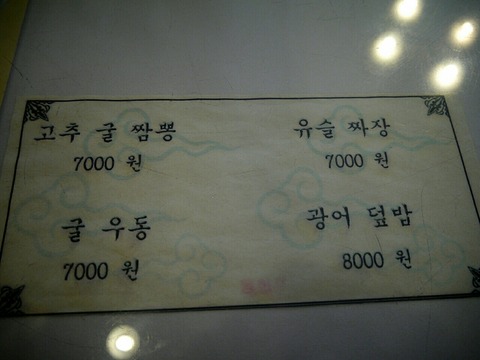 고추 굴 짬뽕
7000 원
유슬 짜장
7000 원
굴 우동
7000 원
광어 덮밥
8000 원